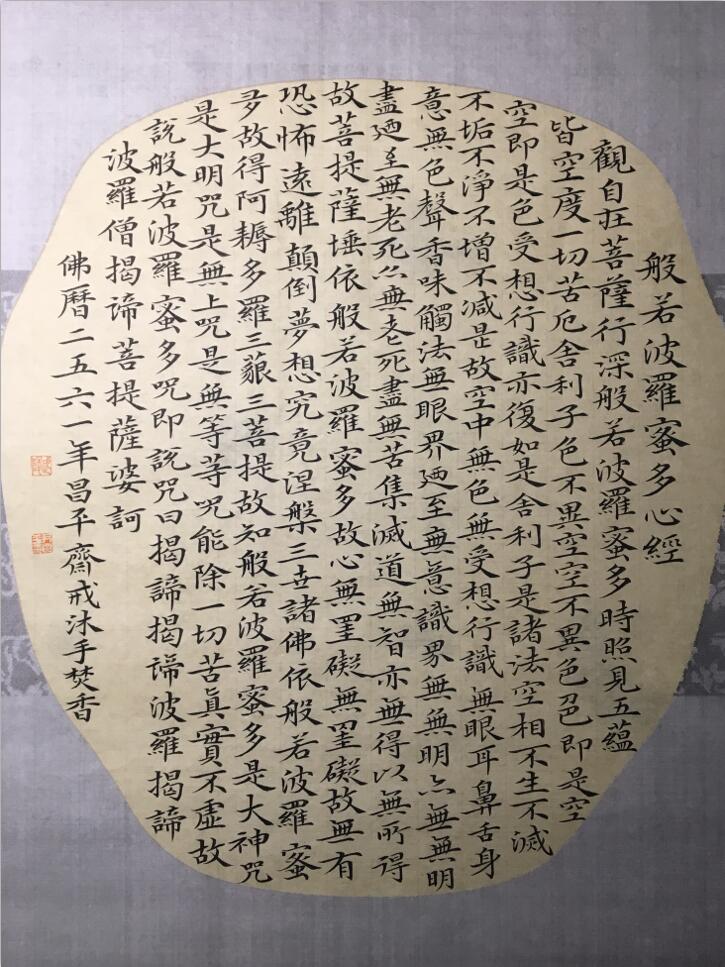 般若波羅蜜多心經
觀自在菩薩行深般若波羅蜜多時照見五蘊
皆空度一切苦厄舍利子色不異空空不異色色即是空
空即是色受想行識亦復如是舍利子是諸法空相不生不滅
不垢不淨不增不減是故空中無色無受想行識無眼耳鼻舌身
意無色聲香味觸法無眼界廼至無意識界無無明亦無無明
盡廼至無老死亦無老死盡無苦集滅道無智亦無得以無所得
故菩提薩埵依般若波羅蜜多故心無罣礙無罣礙故無有
恐怖遠離顛倒夢想究竟涅槃三世諸佛依般若波羅蜜
多故得阿耨多羅三藐三菩提故知般若波羅蜜多是大神咒
是大明咒是無上咒是無等等咒能除一切苦真實不虛故
說般若波羅蜜多咒即說咒曰揭諦揭諦波羅揭諦
波羅僧揭諦菩提薩婆訶
佛曆二五六一年昌平齋戒沐手焚香